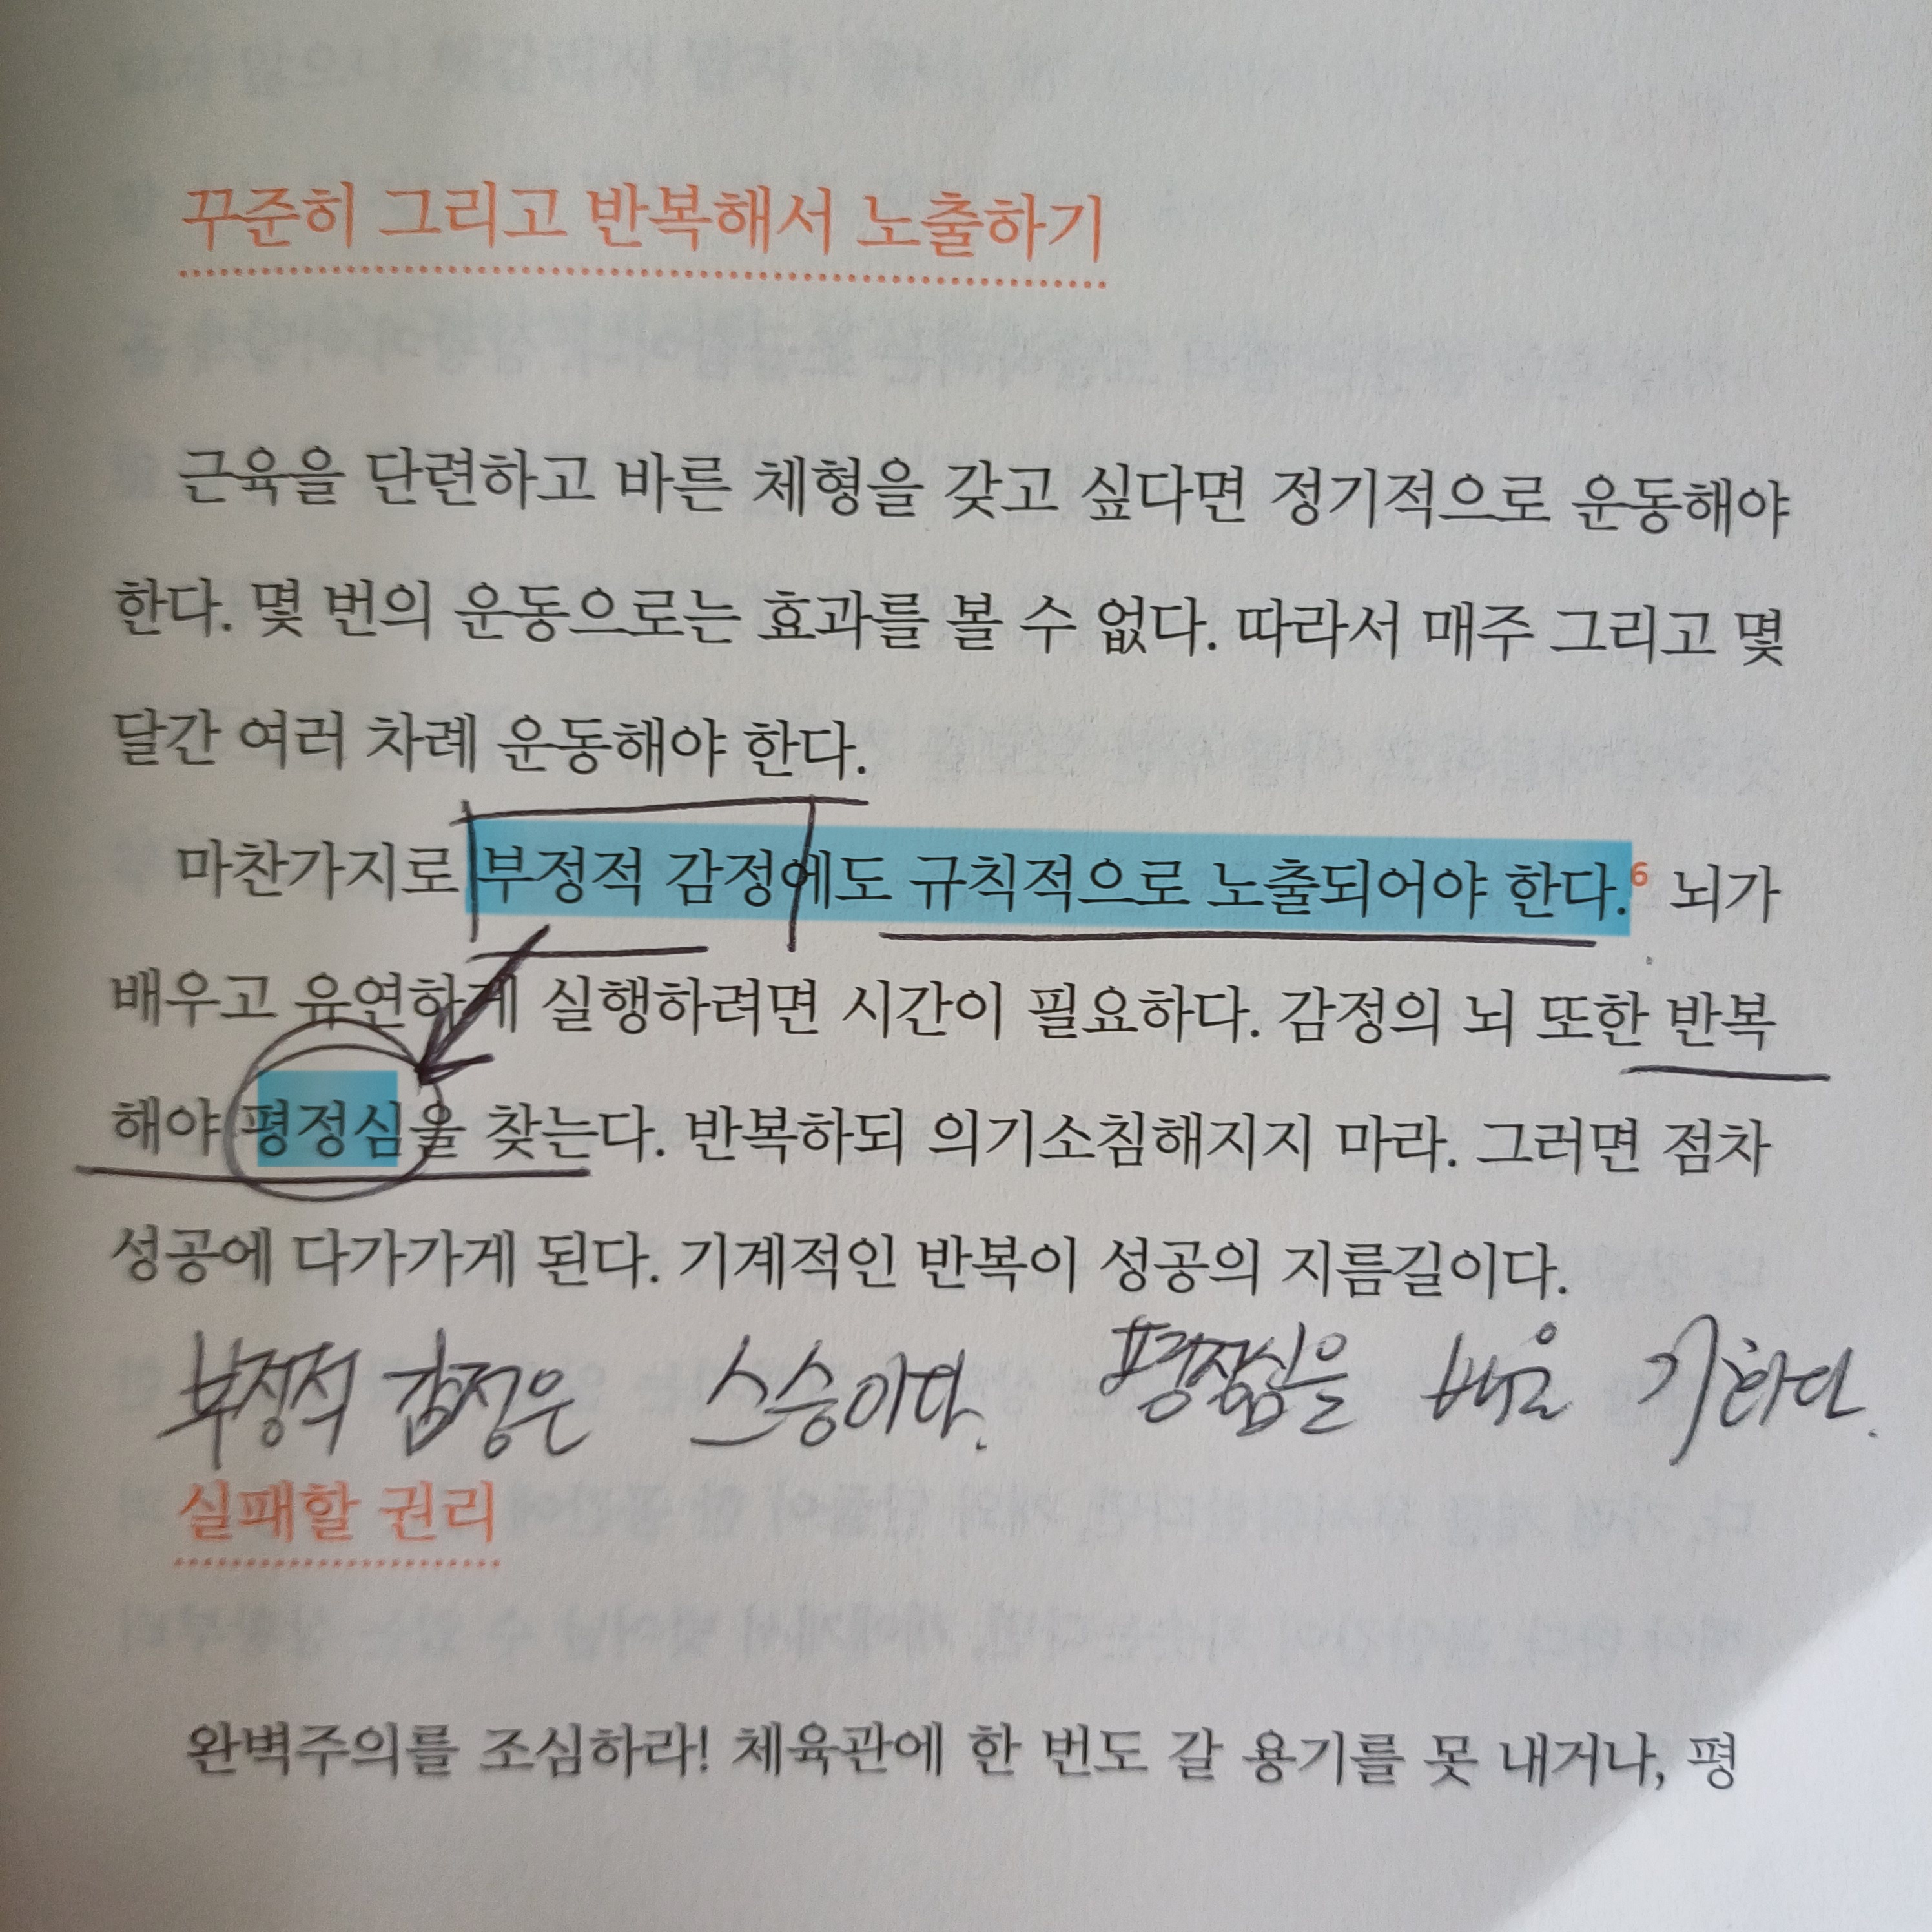 꾸준히 그리고 반복해서 노출하기
근육을 단련하고 바른 체형을 갖고 싶다면 정기적으로 운동해야
한다. 몇 번의 운동으로는 효과를 볼 수 없다. 따라서 매주 그리고 몇
달간 여러 차례 운동해야 한다.
마찬가지로 부정적 감정에도 규칙적으로 노출되어야 한다.6 뇌가
배우고 유연하게 실행하려면 시간이 필요하다. 감정의 뇌 또한 반복
해야 평정심을 찾는다. 반복하되 의기소침해지지 마라. 그러면 점차
성공에 다가가게 된다. 기계적인 반복이 성공의 지름길이다.
부정적 감정은 스승이다. 평정심을 배울
실패할 권리
완벽주의를 조심하라! 체육관에 한 번도 갈 용기를 못 내거나, 평